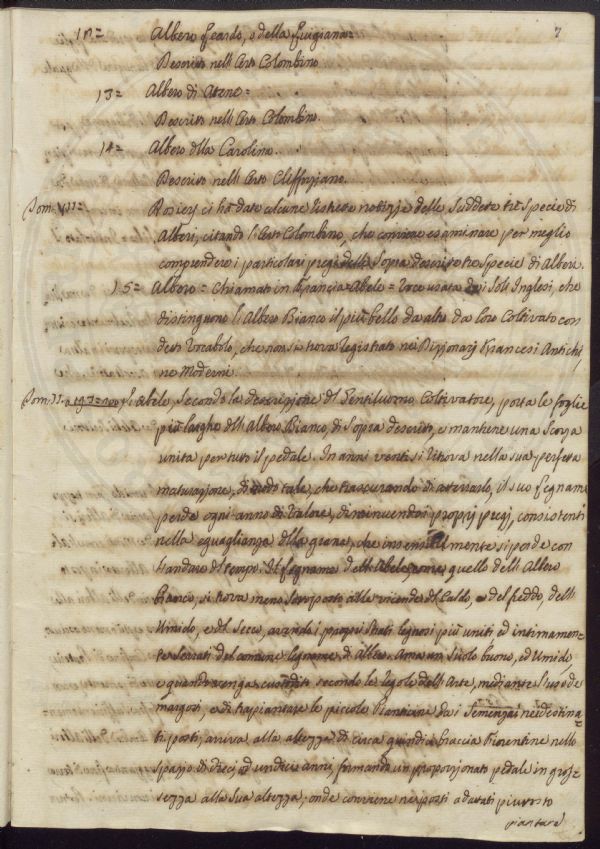 7
12= Albero Feardo, o della Luigiana=
Descritto nell'Orto Colombino
13= Albero di Atene=
Descritto nell'Orto Colombino.
14= Albero della Carolina.
Descritto nell'Orto Cliffortiano.
Rosier ci ha date alcune ristrette notizie delle suddette tre Specie di
Alberi, citando l'Orto Colombino, che conviene esaminare per meglio
comprendere i particolari pregi delle sopra descritte tre Specie di Alberi.
15= Albero = Chiamato in Francia = Abelo = Voce usata dai Soli Inglesi, che
distinguono l'Albero Bianco il più bello da altri da loro Coltivato con
detto Vocabolo, che non si trova registrato nei Dizzionarj Francesi Antichi,
ne Moderni.
L'Abele, secondo la descrizzione del Gentiluomo Coltivatore, porta le foglie
più larghe dell'Albero Bianco, di sopra descritto, e mantiene una Scorza
unita per tutto il pedale. In anni venti si ritrova nella sua perfetta
maturazione, di modo tale, che trascurando di atterrarlo, il suo legname
perde ogni anno di valore, diminuendosi i proprj pregi, consistenti
nella eguaglianza della grana, che insensibilmente si perde con
l'andare del tempo. Il legname dell'Abele, come quello dell'Albero
bianco, si trova meno sottoposto alle vicende del Caldo, e del freddo, dell'
Umido, e del Secco, avendo i proprj strati legnosi più uniti ed intimamen=
te serrati del comune legname di Albero. Ama un suolo buono, ed Umido
e quando venga custodito secondo le regole dell'Arte, mediante l'uso de
margotti, e di trapiantare le piccole Pianticine dai Semenzai nei destina=
ti posti, arriva alla altezza di circa quindici braccia Fiorentine nello
spazio di dieci, od undici anni, formando un proporzionato pedale in gros=
sezza alla sua altezza; onde conviene nei posti adattati piuttosto
piantare